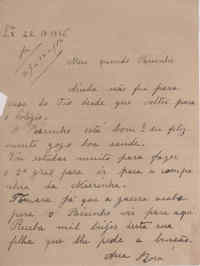 Meu querido Paizinho
Ainda não fui para
casa do Tio desde que voltei para
o Colégio.
O Paizinho está bom? eu feliz-
mente gozo boa saude.
Vou estudar muito para fazer
o 2º grau para ir para a compa-
nhia da Mãezinha.
Tomara já que a guerra acabe
para o Paizinho vir para aqui
Receba mil beijos desta sua
filha que lhe pede a benção.
Ana